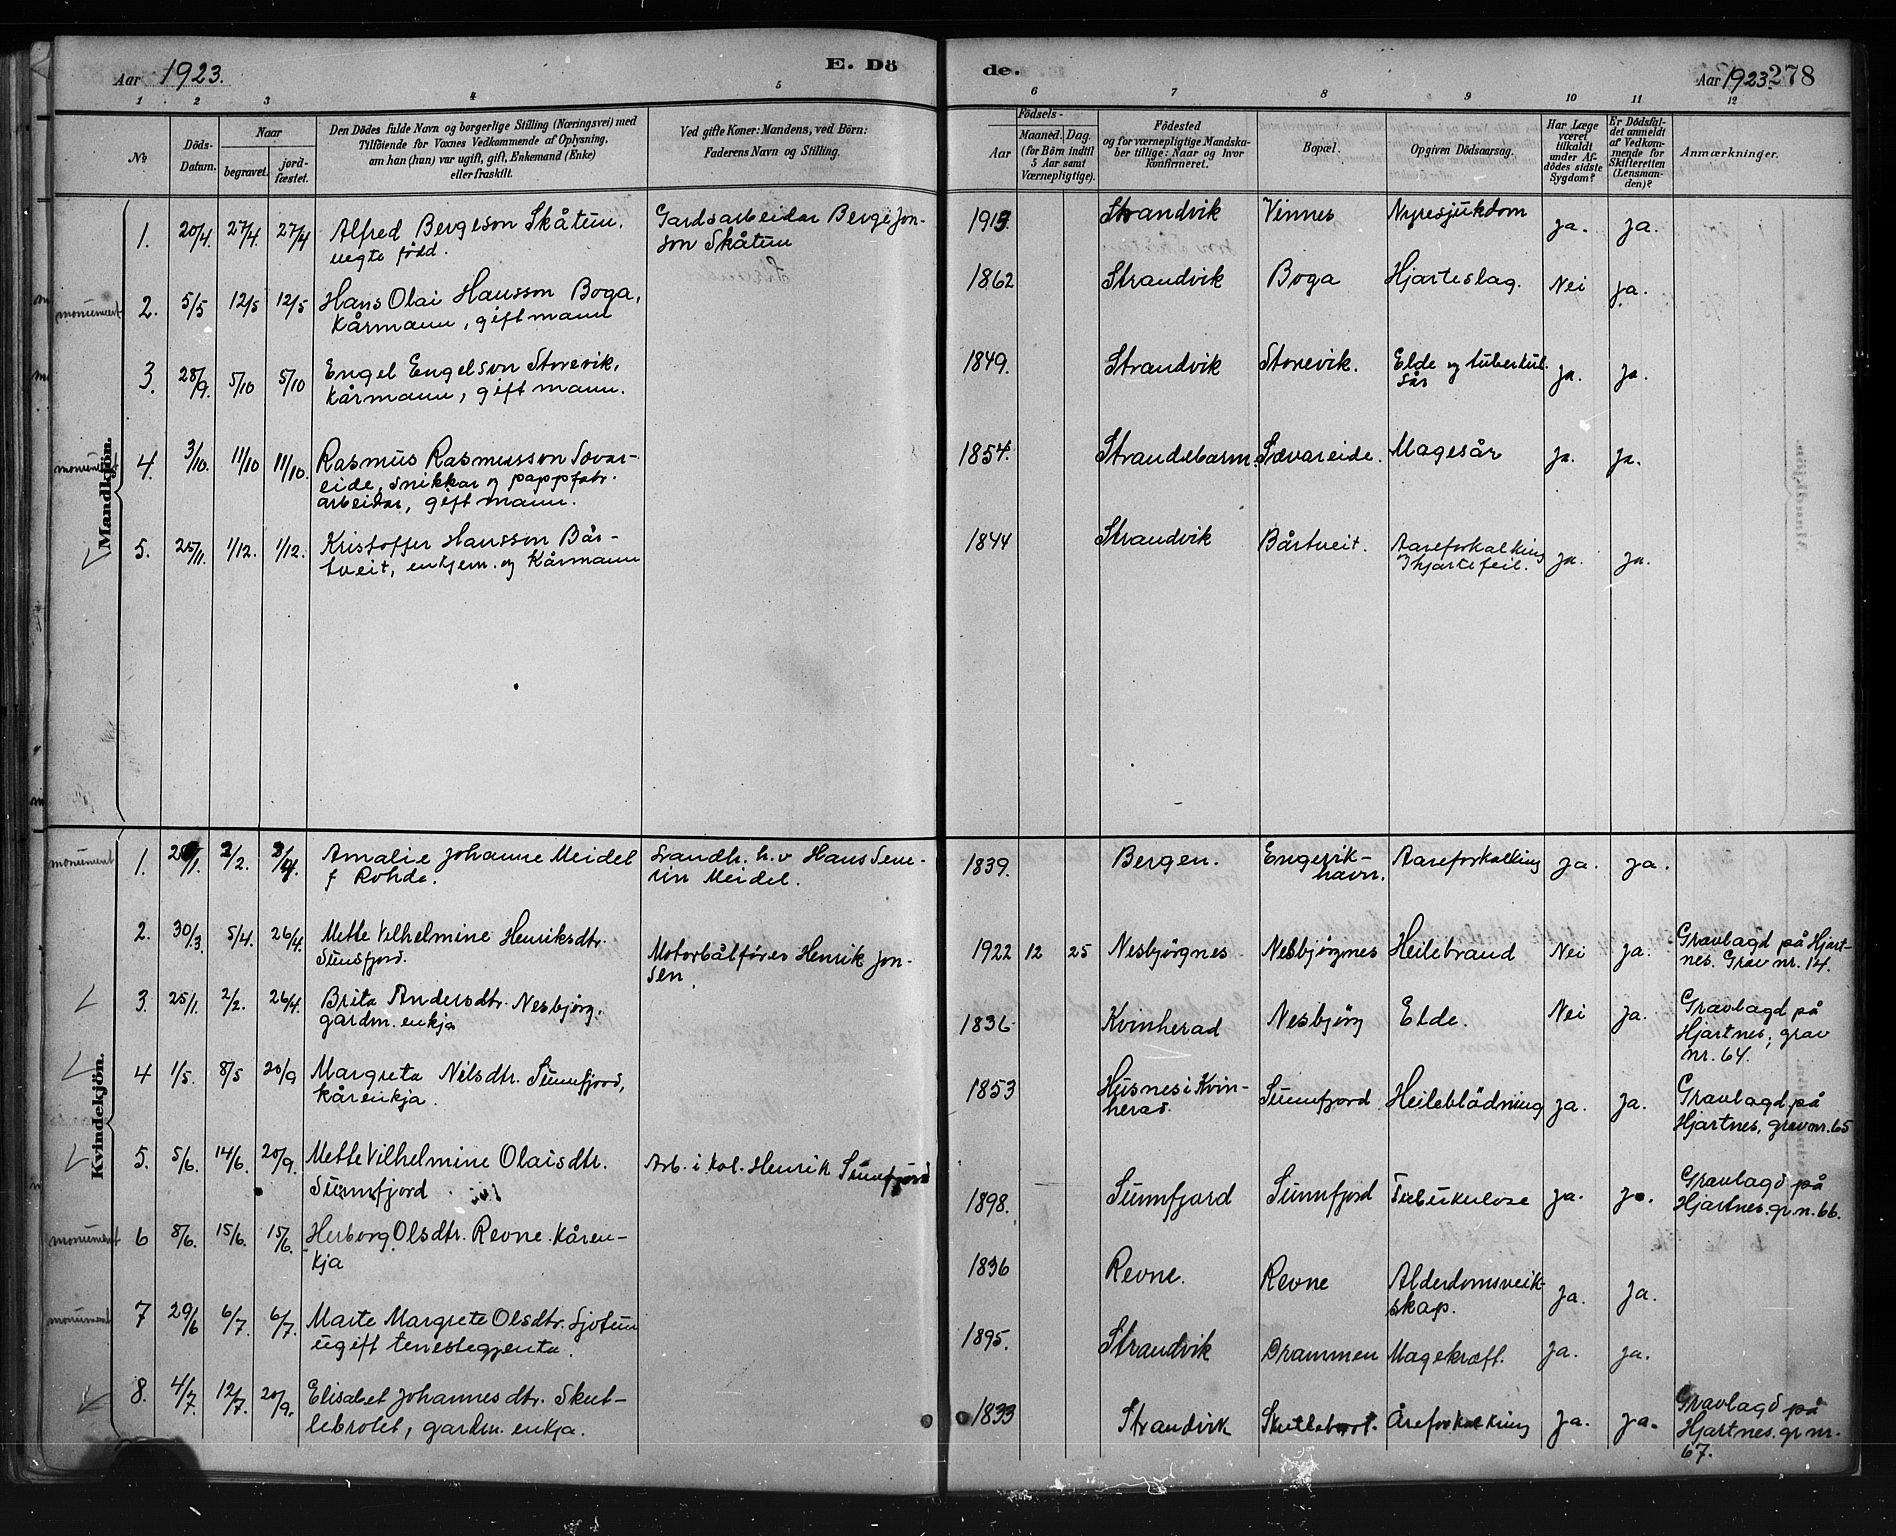 Aar 1923.
E. Dö
de.
Aar 1923.
278
1 2 3 4 5 6 7 8 9 10 11 12
No
Döds-
Datum.
Naar
begravet.
jord-
fæstet.
Den Dödes fulde Navn og borgerlige Stilling (Næringsvei) med
Tilföiende for Voxnes Vedkommende af Oplysning,
om han (hun) var ugift, gift, Enkemand (Enke)
eller fraskilt.
Ved gifte Koner: Mandens, ved Börn:
Faderens Navn og Stilling.
Födsels-
Aar
Maaned. Dag.
(for Börn indtil
5 Aar samt
Værnepligtige).
Födested
og for værnepligtige Mandska-
ber tillige: Naar og hvor
konfirmeret.
Bopæl.
Opgiven Dödsaarsag.
Har Læge
været
tilkaldt
under Af-
dödes sidste
Sygdom?
Er Dödsfal-
det anmeldt
af Vedkom-
mende for
Skifteretten
(Lensman-
den)?
Anmærkninger.
Mandkjön.
1. 20/4. 27/4. 27/4 Alfred Bergeson Skåtun. Gardsarbeidar Berge Jon- 1913 Strandvik Vinnes Nyresjukdom ja. ja.
uegte född. son Skåtun
monument 2. 5/5 12/5 12/5 Hans Olai Hansson Boga, 1862 Strandvik Boga Hjarteslag. Nei ja.
Kårmann, gift mann
3. 28/9. 5/10 5/10 Engel Engelson Storevik, 1849. Strandvik Storevik. Elde og tuberkul. ja. ja.
kårmann, gift mann. sår
monument 4. 3/10. 11/10 11/10. Rasmus Rasmusson Sævar- 1854. Strandebarm. Sævareide. Magesår ja. ja.
eide, snikkar og pappfabr.
arbeidar, gift mann.
5. 25/11. 1/12. 1/12. Kristoffer Hansson Bår- 1844 Strandvik Bårtveit. Aareforkalking ja. ja.
tveit, enkjem. og Kårmann og hjartefeil.
Kvindekjön.
monument 1. /1. 2/2. Amalie Johanne Meidel Srandh. h.v Hans Seve- 1839. Bergen. Engevik- Aareforkalking ja. ja.
f Rohde. rin Meidel. havn.
2. 30/3. 5/4. 26/4. Mette Vilhelmine Henriksdtr. Motorbåtförer Henrik Jon- 1922 12 25 Nesbjørgnes Nesbjørgnes Heilebrand Nei ja. Gravlagd på Hjart-
Sunfjord. sen. nes. Grav nr. 14.
3. 25/1. 2/2. 26/4. Brita Andersdtr. Nesbjørg. 1836 Kvinherad Nesbjørg Elde. Nei ja. Gravlagd på
gardm. enkja Hjartnes, grav
nr. 64.
4 1/5. 8/5 20/9 Margreta Nilsdtr. Sunnfjord, 1853 Husnes i Kvin- Sunnfjord Heileblödning ja. ja. Gravlagd på
kårenkja. herad. Hjartnes, grav nr. 65
5. 5/6. 14/6. 20/9. Mette Vilhelmine Olaisdtr. Arb. i kol. Henrik Sunnfjord 1898. Sunnfjord Sunnfjord Tuberkulose ja. ja. Gravlagd på
Sunnfjord Hjartnes. gr. n. 66.
monument 6 8/6. 15/6. 15/6. Herborg Olsdtr. Revne. Kåren- 1836 Revne. Revne Alderdomsveik- ja. ja.
kja skap.
monument 7 29/6 6/7. 6/7. Marte Margrete Olsdtr. Sjotun 1895. Strandvik Drammen Magekræft. ja. ja.
ugift tenestegjenta.
8. 4/7. 12/7. 20/9. Elisabet Johannesdtr. Skut- 1833 Strandvik Skutlebrot. Åreforkalking ja. ja. Gravlagd på
lebrotet, gardm. enkja. Hjartnes. gr nr.
67.